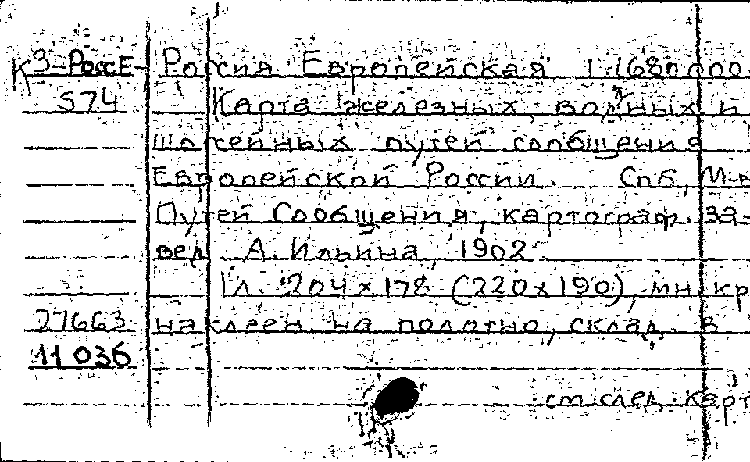 К3-РоссЕ- Россия Европейская 1:1680000
574 Карта железных, водных и
шоссейных путей сообщения
Европейской России. Спб, М-в
Путей Сообщения, картограф. за-
вед. А. Ильина, 1902
1л. 204х178 (220х190), мн. кр
27663 наклеен на полотно, склад. в
11036
см. след. карт